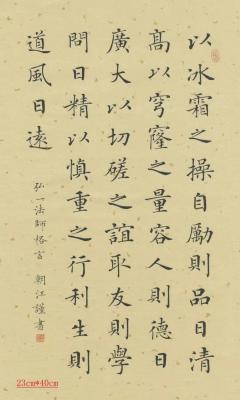 以冰霜之操自勵則品日清
高以穹窿之量容人則德日
廣大以切磋之誼取友則學
問日精以慎重之行利生則
道風日遠
弘一法師格言 朝江謹書
23cm*40cm